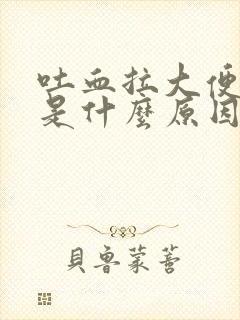 吐血拉大便
是什麼原因
貝魯蒙蒼